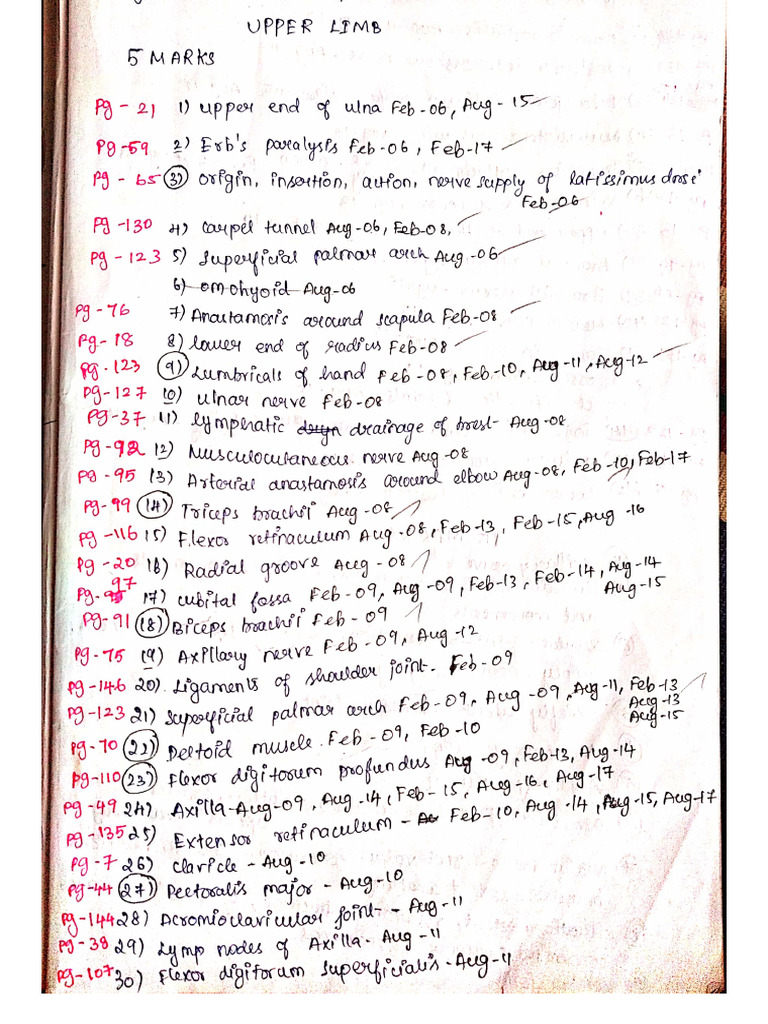 UPPER LIMB
5 MARKS
Pg - 21 1) upper end of ulna Feb-06, Aug-15
Pg -59 2) Erb's paralysis Feb-06, Feb-17
Pg - 65 3) origin, insertion, action, nerve supply of latissimus dorsi
Feb-06
Pg -130 4) carpel tunnel Aug-06, Feb-08,
Pg - 123 5) superficial palmar arch Aug-06
6) omohyoid Aug-06
Pg -76 7) Anastamosis around scapula Feb-08
Pg- 18 8) lower end of radius Feb-08
Pg- 123 9) Lumbricals of hand Feb-08, Feb-10, Aug-11, Aug-12
Pg-127 10) ulnar nerve Feb-08
Pg-37 11) lymphatic drainage of brest- Aug-08
Pg-92 12) Musculocutaneous nerve Aug-08
Pg -95 13) Arterial anastamosis around elbow Aug-08, Feb-10, Feb-17
Pg-99 14) Triceps brachii Aug-08
Pg -116 15) Flexor retinaculum Aug-08, Feb-13, Feb-15, Aug -16
Pg-20 16) Radial groove Aug -08
Pg- 97 17) cubital fossa Feb-09, Aug-09, Feb-13, Feb-14, Aug-14
Aug-15
Pg-91 18) Biceps brachii Feb-09
Pg-75 19) Axillary nerve Feb-09, Aug-12
Pg-146 20) Ligaments of shoulder joint- Feb-09
Pg-123 21) superficial palmar arch Feb-09, Aug-09, Aug-11, Feb-13
Aug-13
Aug-15
Pg-70 22) Deltoid muscle. Feb-09, Feb-10
Pg-110 23) Flexor digitorum profundus Aug-09, Feb-13, Aug-14
Pg-49 24) Axilla-Aug-09, Aug-14, Feb-15, Aug-16, Aug-17
Pg-135 25) Extensor retinaculum - Feb-10, Aug-14, Aug-15, Aug-17
Pg-7 26) clavicle - Aug-10
Pg-44 27) Pectoralis major - Aug-10
Pg-144 28) Acromioclavicular joint- - Aug-11
Pg-38 29) Lymp nodes of Axilla- Aug-11
Pg-107 30) Flexor digitorum superficialis - Aug-11